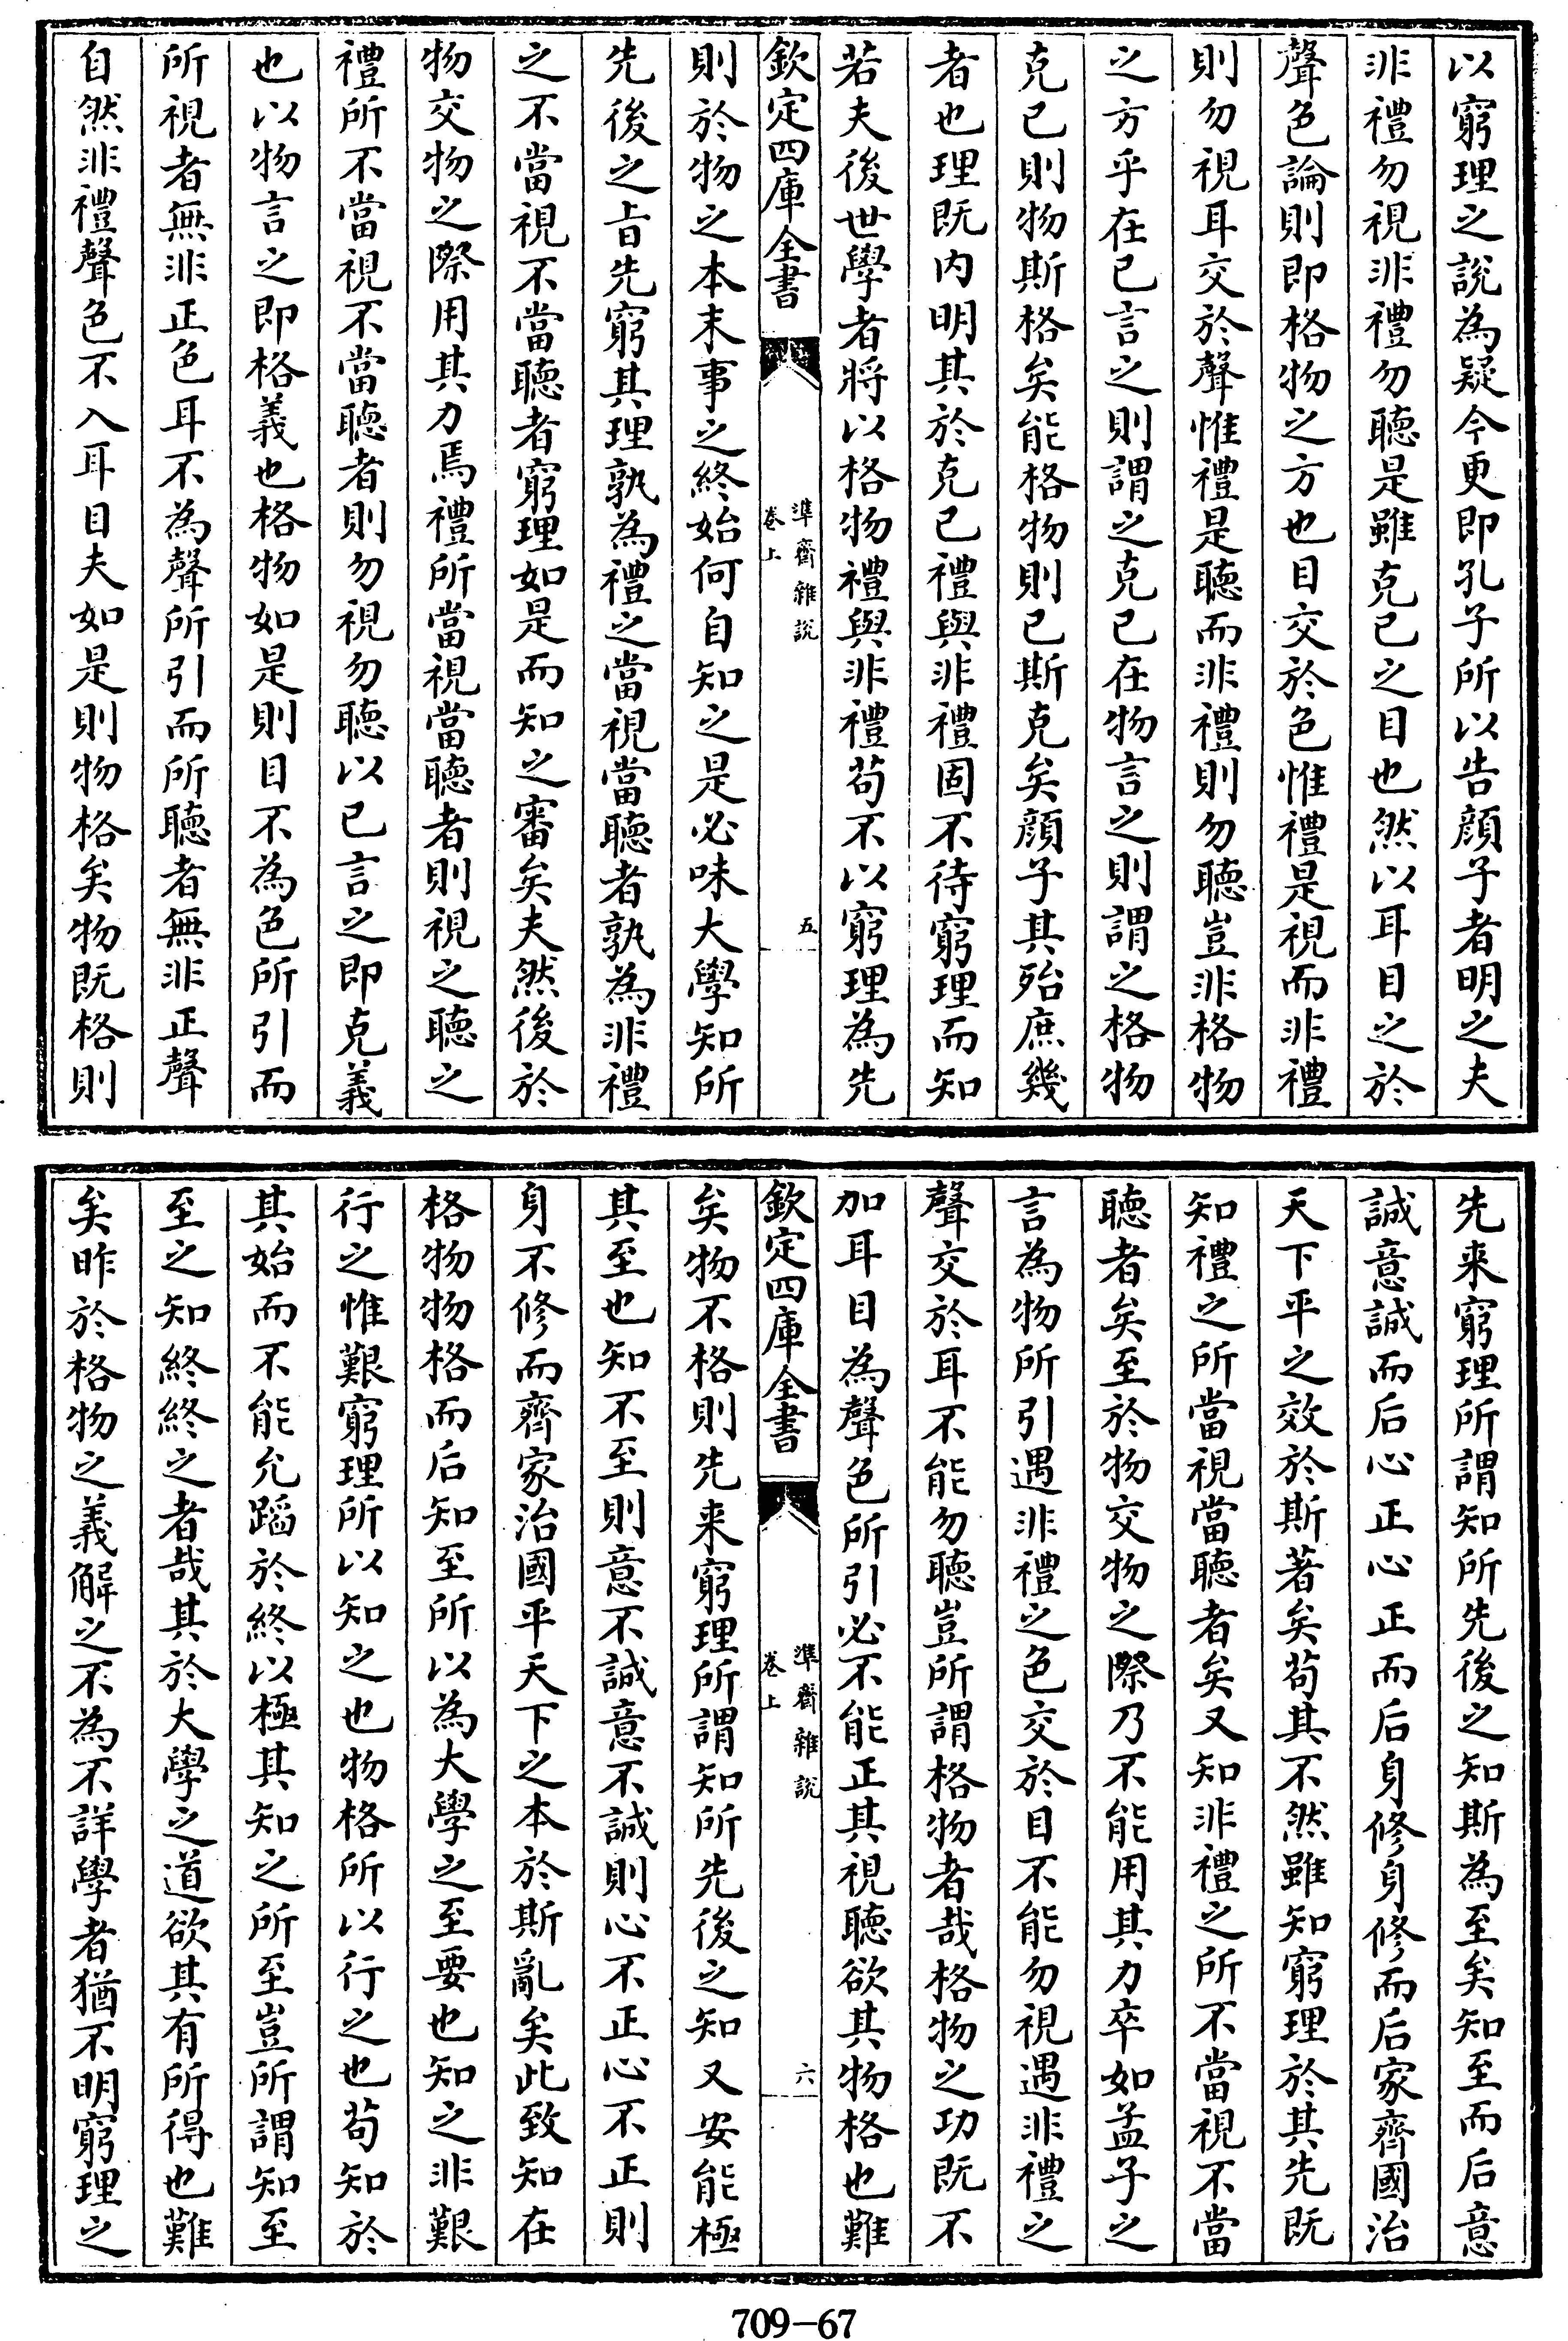 以窮理之說為疑今更即孔子所以告顏子者明之夫
非禮勿視非禮勿聽是雖克已之目也然以耳目之於
聲色論則即格物之方也目交於色惟禮是視而非禮
則勿視耳交於聲惟禮是聽而非禮則勿聽豈非格物
之方乎在已言之則謂之克已在物言之則謂之格物
克已則物斯格矣能格物則已斯克矣顏子其殆庶幾
者也理既内明其於克已禮與非禮固不待窮理而知
若夫後世學者將以格物禮與非禮苟不以窮理為先
欽定四庫全書
準齋雜說
卷上
五
則於物之本末事之終始何自知之是必味大學知所
先後之旨先窮其理孰為禮之當視當聽者孰為非禮
之不當視不當聽者窮理如是而知之審矣夫然後於
物交物之際用其力焉禮所當視當聽者則視之聽之
禮所不當視不當聽者則勿視勿聽以已言之即克義
也以物言之即格義也格物如是則目不為色所引而
所視者無非正色耳不為聲所引而所聽者無非正聲
自然非禮聲色不入耳目夫如是則物格矣物既格則
先来窮理所謂知所先後之知斯為至矣知至而后意
誠意誠而后心正心正而后身修身修而后家齊國治
天下平之效於斯著矣苟其不然雖知窮理於其先既
知禮之所當視當聽者矣又知非禮之所不當視不當
聽者矣至於物交物之際乃不能用其力卒如孟子之
言為物所引遇非禮之色交於目不能勿視遇非禮之
聲交於耳不能勿聽豈所謂格物者哉格物之功既不
加耳目為聲色所引必不能正其視聽欲其物格也難
欽定四庫全書
準齋雜說
卷上
六
矣物不格則先来窮理所謂知所先後之知又安能極
其至也知不至則意不誠意不誠則心不正心不正則
身不修而齊家治國平天下之本於斯亂矣此致知在
格物物格而后知至所以為大學之至要也知之非艱
行之惟艱窮理所以知之也物格所以行之也苟知於
其始而不能允蹈於終以極其知之所至豈所謂知至
至之知終終之者哉其於大學之道欲其有所得也難
矣昨於格物之義解之不為不詳學者猶不明窮理之
709-67